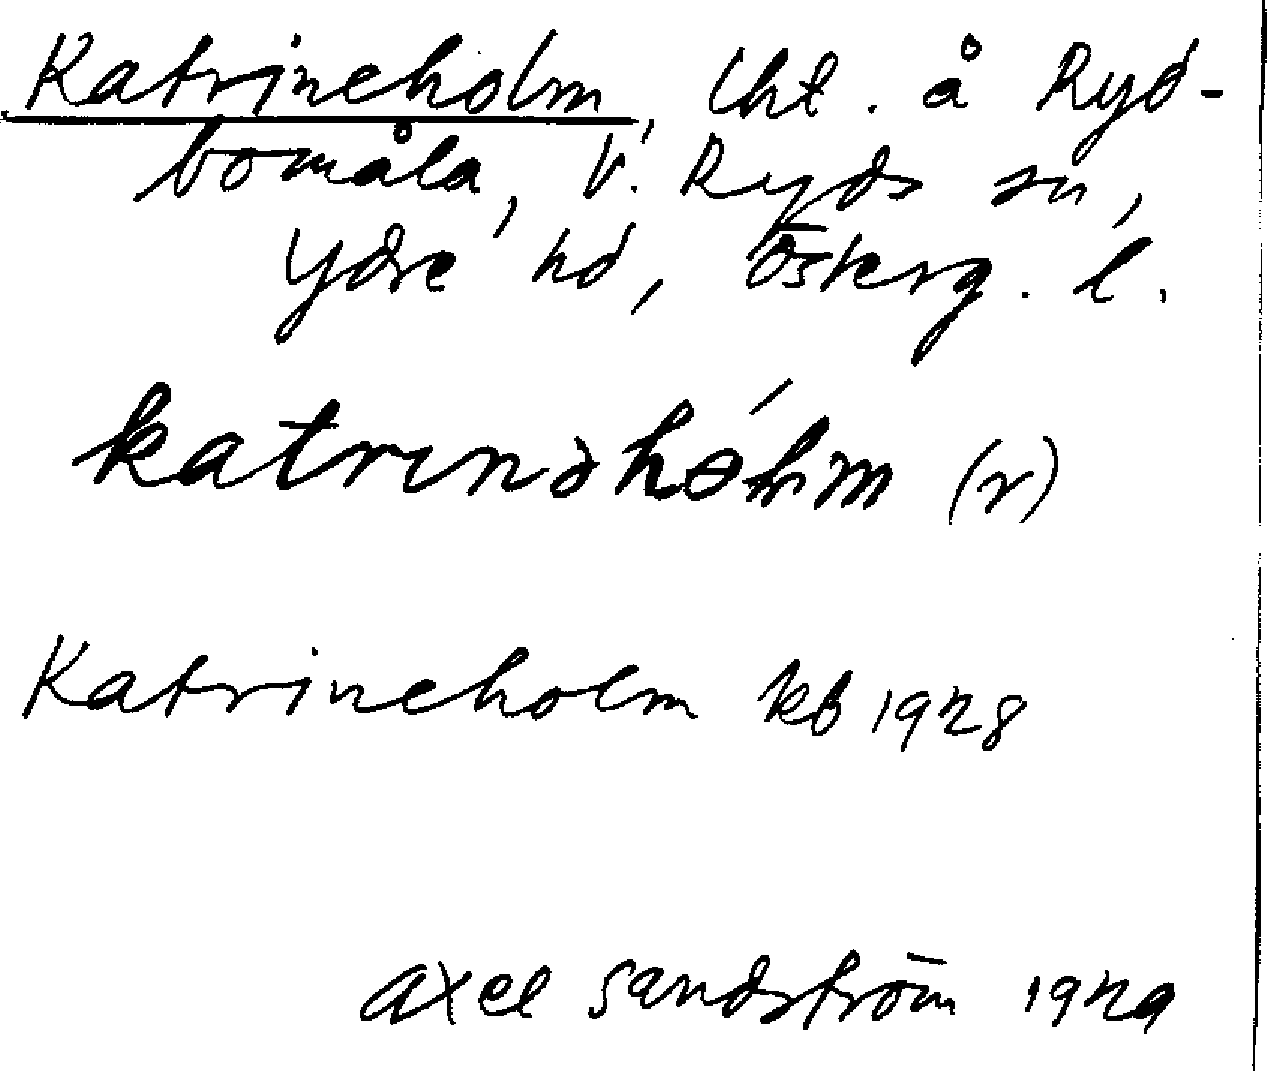 Katrineholm, lht. å Ryd-
bomåla, V. Ryds sn,
Ydre hd, Österg. l.
katrinəhólm (r)
Katrineholm kb 1928
Axel Sandström 1929